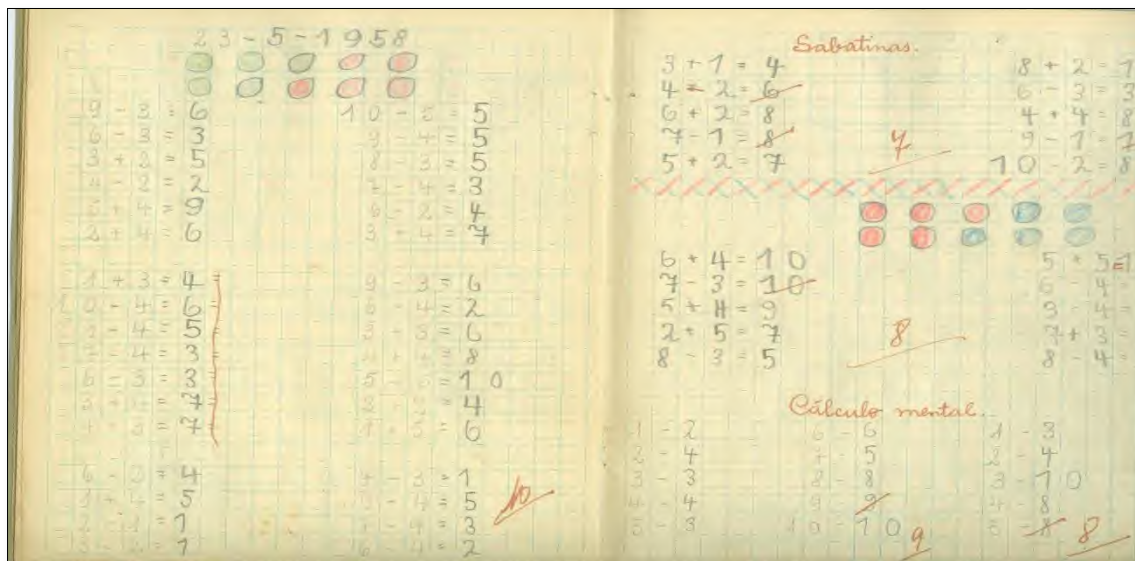 23-5-1958
9 - 3 = 6
6 - 3 = 3
3 + 2 = 5
4 - 2 = 2
5 + 4 = 9
2 + 4 = 6
10 - 5 = 5
9 - 4 = 5
8 - 3 = 5
7 - 4 = 3
6 - 2 = 4
3 + 4 = 7
1 + 3 = 4
10 - 4 = 6
9 - 4 = 5
7 - 4 = 3
6 - 3 = 3
3 + 4 = 7
= 7
9 - 3 = 6
6 - 4 = 2
3 + 3 = 6
= 8
= 10
= 4
= 6
= 4
= 5
= 1
= 1
= 1
= 5
= 3
= 2
10
Sabatinas.
3 + 1 = 4
4 - 2 = 6
6 + 2 = 8
7 - 1 = 8
5 + 2 = 7
7
8 + 2 = 1
6 - 3 = 3
4 + 4 = 8
9 - 1 = 1
10 - 2 = 8
6 + 4 = 10
7 - 3 = 10
5 + 4 = 9
2 + 5 = 7
8 - 3 = 5
8
5 + 5 = 1
6 - 4 =
3 - 4 =
7 + 3 =
8 - 4 =
Cálculo mental.
1 - 2
2 - 4
3 - 3
4 - 4
5 - 3
6 - 6
7 - 5
8 - 8
9 - 9
10 - 10
9
1 - 3
2 - 4
3 - 10
4 - 8
5 - 8
8